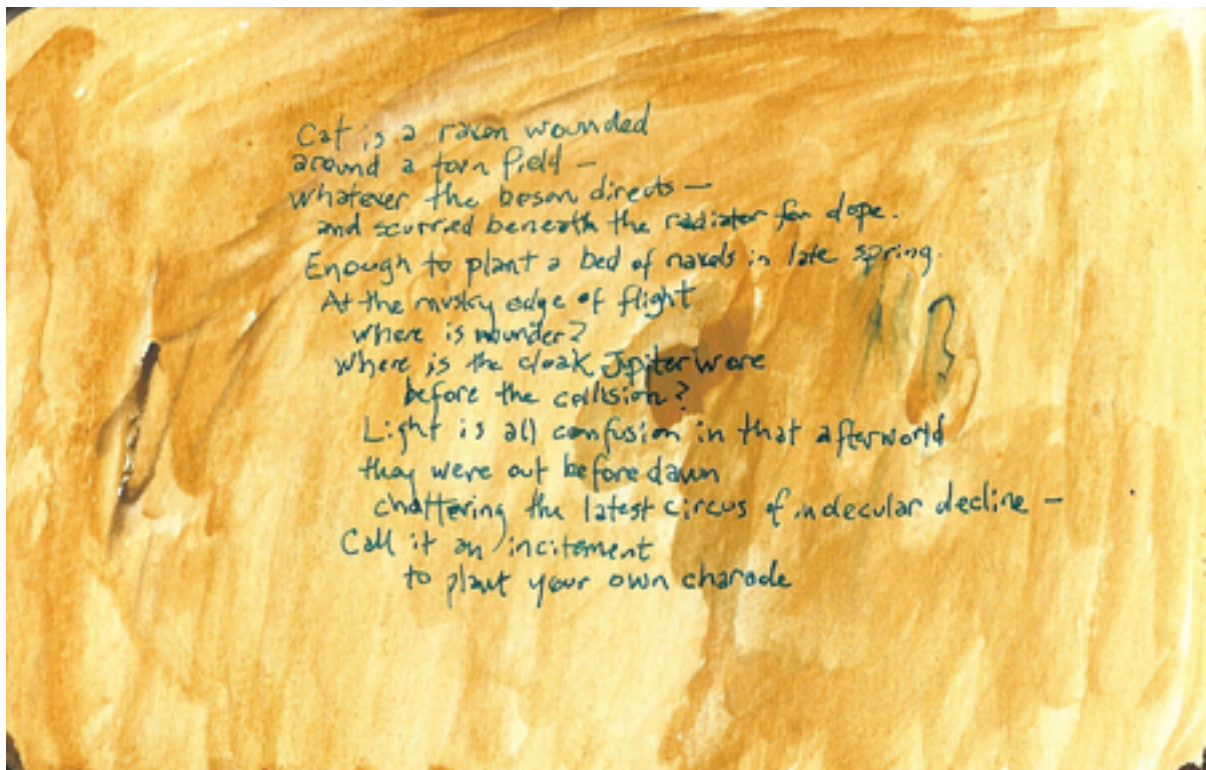 Cat is a raven wounded
around a torn field —
whatever the boson directs —
and scurried beneath the radiator for dope.
Enough to plant a bed of navels in late spring.
At the musky edge of flight
where is wounder?
Where is the cloak Jupiter wore
before the collision?
Light is all confusion in that afterworld
they were out before dawn
chattering the latest circus of molecular decline —
Call it an incitement
to plant your own charade